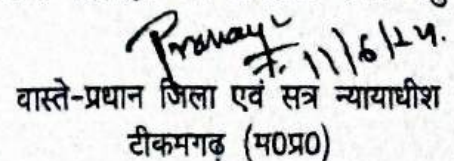 11/6/24.
वास्ते-प्रधान जिला एवं सत्र न्यायाधीश
टीकमगढ़ (म0प्र0)